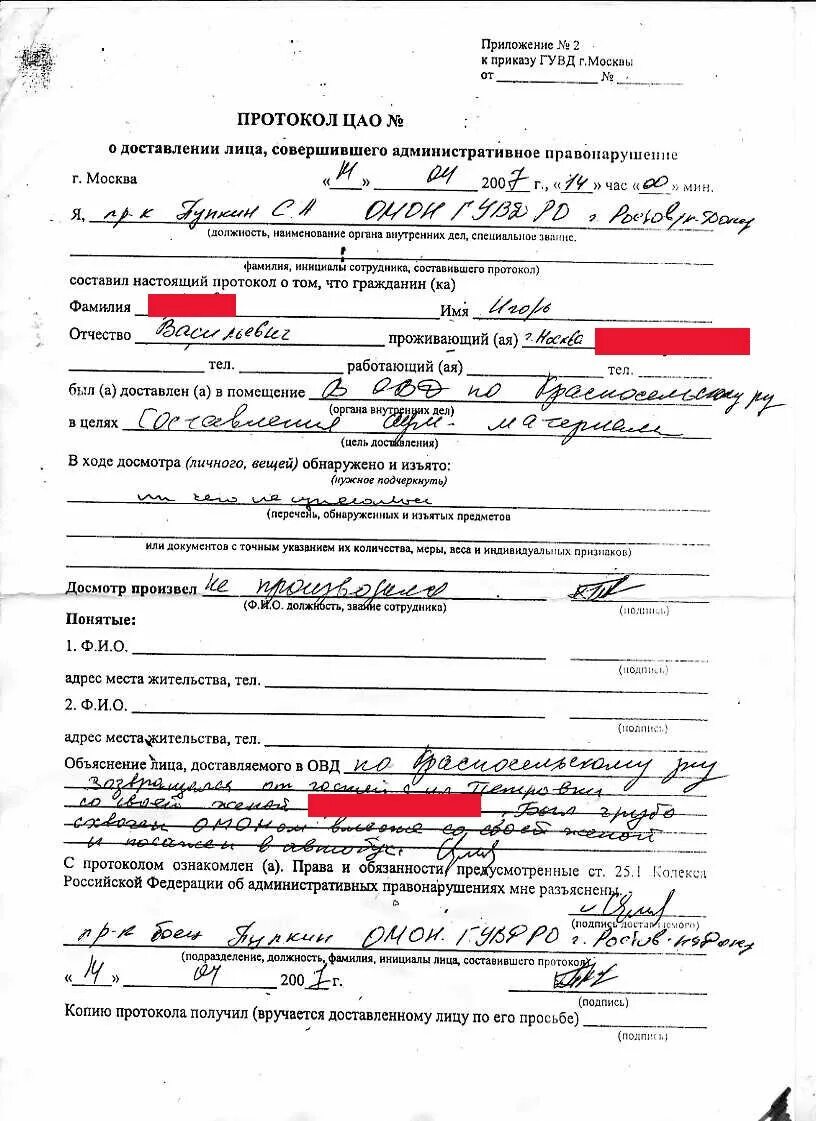 Приложение № 2
к приказу ГУВД г.Москвы
от №
ПРОТОКОЛ ЦАО №
о доставлении лица, совершившего административное правонарушение
г. Москва «14» 04 2007 г., «14» час «00» мин.
Я, пр-к Пупкин С.А ОМОН ГУВД РО г Ростов/н-Дону
(должность, наименование органа внутренних дел, специальное звание.
фамилия, инициалы сотрудника, составившего протокол)
составил настоящий протокол о том, что гражданин (ка)
Фамилия Имя Игорь
Отчество Васильевич проживающий (ая) г. Москва
тел. работающий (ая) тел.
был (а) доставлен (а) в помещение В ОВД по Красносельскому ру
(органа внутренних дел)
в целях Составления адм- материала
(цель доставления)
В ходе досмотра (личного, вещей) обнаружено и изъято:
(нужное подчеркнуть)
ни чего не
(перечень, обнаруженных и изъятых предметов
или документов с точным указанием их количества, меры, веса и индивидуальных признаков)
Досмотр произвел не производился
(Ф.И.О. должность, звание сотрудника) (подпись)
Понятые:
1. Ф.И.О.
(подпись)
адрес места жительства, тел.
2. Ф.И.О.
(подпись)
адрес места жительства, тел.
Объяснение лица, доставляемого в ОВД по Красносельскому ру
Возвращался от гостей с ул Петровки
со своей женой . Был грубо
схвачен ОМОНом вместе со своей женой
и посажен в автобус.
С протоколом ознакомлен (а). Права и обязанности, предусмотренные ст. 25.1 Кодекса
Российской Федерации об административных правонарушениях мне разъяснены.
(подпись доставляемого)
пр-к боец Пупкин ОМОН ГУВД РО г. Ростов-на-Дону
(подразделение, должность, фамилия, инициалы лица, составившего протокол)
«14» 04 2007 г.
(подпись)
Копию протокола получил (вручается доставленному лицу по его просьбе)
(подпись)